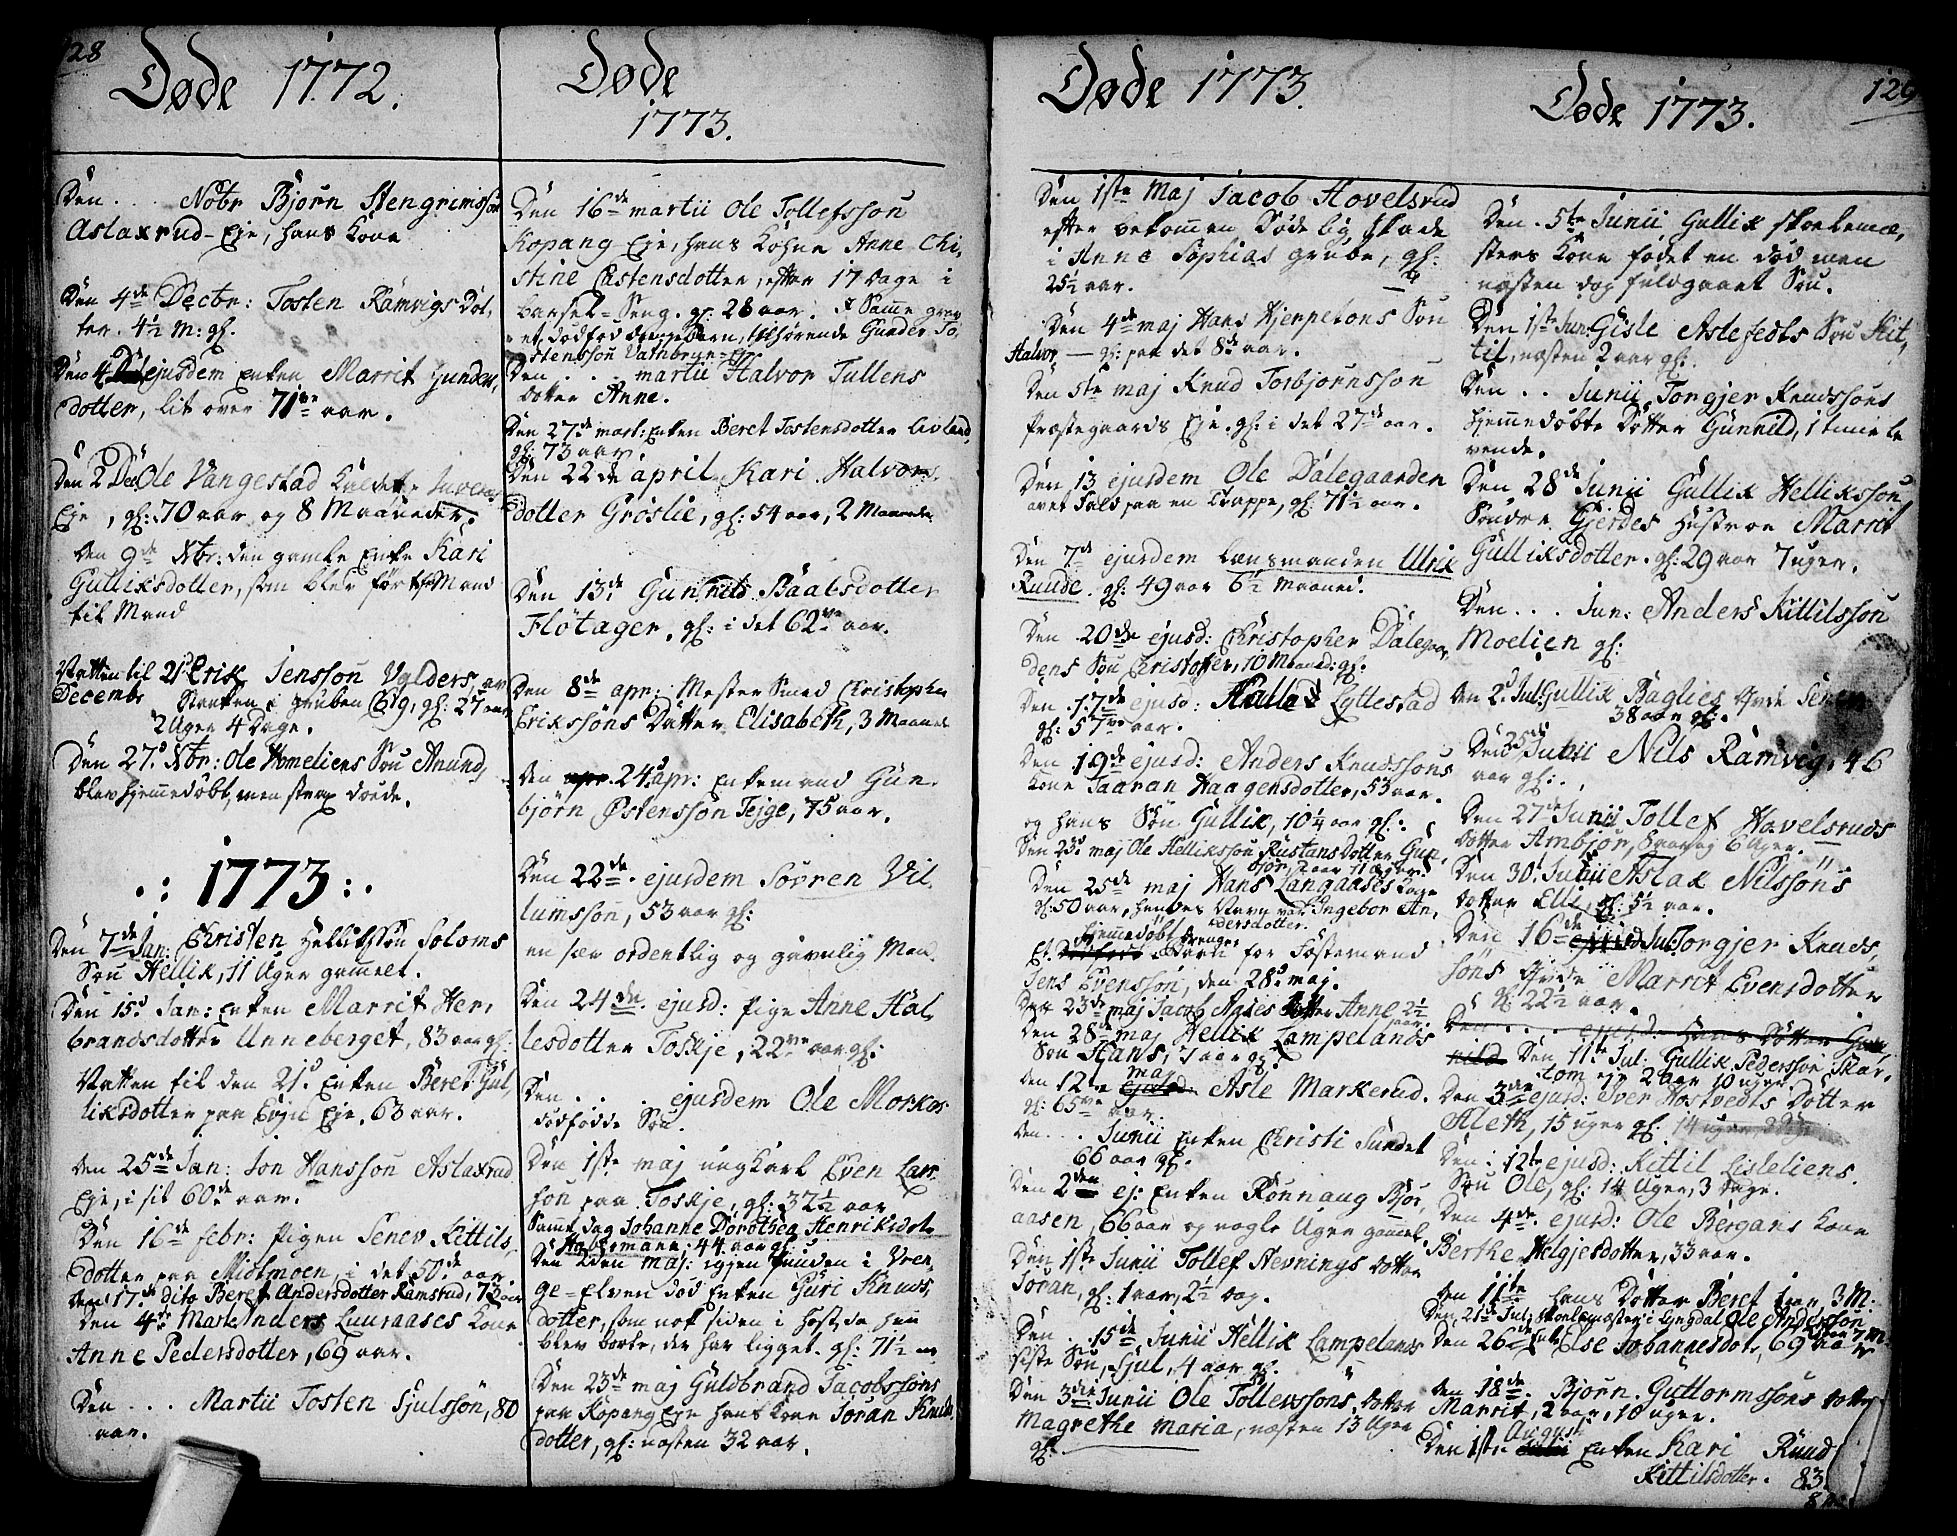 128
Døde 1772.
Den . . . Nobr Bjørn Stengrimssøn
Aslaxrud-Eje, hans Kone
Den 4de Decbr: Tosten Ramvigs Dot,
ter. 4½ M: gl.
Den 4 ejusdem Enken Marrit Gunders,
dotter, lit over 71 aar.
Den 2 Dec Ole Vangestad kaldet
Eje, gl: 70 aar og 8 Maaneder.
Den 9de Xbr: den gamle Enke Kari
Gulliksdotter, som blev ført fra Mand
til Mand
Natten til 21 Erik Jenssøn Vylders, av
Decembr Stanken i gruben No 9, gl: 27 aar
2 Uger 4 Dage.
Den 27. Xbr: Ole Homeliens Søn Anund,
blev hjemmedøbt, men strax døde.
. : 1773 : .
Den 7de Jan: Christen Hellikssøn Soloms
Søn Hellik, 11 Uger gammel.
Den 15. Jan: Enken Marrit Her,
brandsdotter Unneberget, 83 aar gl:
Natten til den 21. Enken Beret Gul,
liksdotter paa Eje, 63 aar.
Den 25de Jan: Jon Hanssøn Aslaxrud
Eje, i sit 60de aar.
Den 16de febr: Pigen Senev Kittils,
dotter paa Midtmoen, i det 50de aar.
Den 17. dito Beret Andersdotter Ramsrud, 73 aar
Den 4de Mart: Anders Luuraases Kone
Anne Pedersdotter, 69 aar.
Den . . . Martii Tosten Sjulssøn, 80
aar.
Døde
1773.
Den 16de martii Ole Tollefssøn
Kopang Eje, hans Kohne Anne Chi,
stine Castensdotter, efter 17 Dage i
Barsel-Seng. gl: 28 aar. I Samme grav
et dødfød Barn, tilhørende Gunder To,
stenssøn
Den . . . martii Halvor Tullens
dotter Anne.
Den 27de mart: Enken Beret Tostensdotter Livland,
gl: 73 aar.
Den 22de april Kari Halvors,
dotter Grøslie, gl: 54 aar, 2 Maaneder
Den 13de Gunnild Baalsdotter
Fløtager, gl: i det 62 aar.
Den 8de apr: Mester Smed Christopher
Erikssøns Datter Elisabeth, 3 Maaned
Den 24. apr: Enkemand Gun,
bjørn Østenssøn Tejge, 75 aar.
Den 22de. ejusdem Søvren Vil,
lumssøn, 53 aar gl:
en sær ordentlig og gavnlig Mand
Den 24de. ejusd: pige Anne Hal,
lesdotter Toskje, 22 aar gl:
Den . . . ejusdem Ole Morkos
dødfødde Søn.
Den 1ste maj ungkarl Even Lars,
søn paa Toskje, gl: 32½ aar
Samme dag Johanne Dorothea Henriksdot,
44 aar gl.
Den 2den maj: igjen funden i Vren,
ge-Elven død Enken Guri Knuds,
dotter, som nok siden i Høst, da hun
blev borte, der har ligget. gl: 71½ aar
Den 23de maj Guldbrand Jacobssøns
paa Kopang Eje hans Kone Joran Knuds,
dotter, gl: næsten 32 aar.
Døde 1773.
Den 1ste Maj Jacob Hovelsrud
efter bekommen Dødelig Skade
i Anne Sophias grube, gl:
25½ aar.
Den 4de maj Hans Hjerpetons Søn
Halvor, — gl: paa det 8de aar.
Den 5te maj Knud Torbjørnssøn
Præstegaards Eje. gl: i det 27de aar.
Den 13 ejusdem Ole Dalegaarden
avet Fald paa en Trappe, gl: 71½ aar.
Den 7de ejusdem Lænsmanden Ulrik
Ruude. gl: 49 aar 6½ Maaned.
Den 20de ejusd: Christopher Dalegaar,
dens Søn Christoffer, 10 Maaned: gl:
Den 17de ejusd: Halle Lyttestad
gl: 57 aar.
Den 19de ejusd: Anders Knudssøns
Kone Taaran Haagensdotter, 53 aar.
og hans Søn Gullik, 10¼ aar gl:
Den 23. maj Ole Hellikssøn Rustans Dotter Gun,
2 aar 11 Uger.
Den 25de maj Hans Langaases Kone
gl: 50 aar, hendes Navn var Ingebor An,
dersdotter.
Et hjemmedøbt Drenge Barn for Fæstemand
Jens Evenssøn, den 28. maj.
Den 23de maj Jacob Agies Dotter Anne 2½ aar.
Den 28de maj Hellik Lampelands
Søn Hans, 1 aar gl:
Den 12te maj Asle Markerud.
gl: 65 aar.
Den . . . Junii Enken Christi Sundet
66 aar gl.
Den 2den ej: Enken Rønnaug Bjør,
aasen, 66 aar og nogle Uger gammel.
Den 1ste Junii Tollef Nevnings dotter
Joran, gl: 1 aar, 2½ Dag.
Den . 15de Junii Hellik Lampelands
siste Søn, Sjul, 4 aar gl.
Den 3die Junii Ole Tollevssøns, dotter
Magrethe Maria, næsten 13 Uger
gl:
129
Døde 1773.
Den . 5te Junii Gullik skoleme,
sters Kone fødet en død men
næsten dog fuldgaaet Søn.
Den 1ste Jun: Gisle Aslefedts Søn Kit,
til, næsten 2 aar gl.
Den . . Junii Torgjer Knudssøns
hjemmedøbte Dotter Gunnild, 1 time le
vende.
Den 28de Junii Gullik Hellikssøn
Søndre Gjerdes Hustroe Marrit
Gulliksdotter. gl: 29 aar 7 uger.
Den . . . Jun: Anders Kittilssøn
Moelien gl:
Den 2. Jul: Gullik Baglies Gyde Senev
38 aar gl.
Den 25de Junii Nils Ramvig, 46
aar gl:
Den 27de Junii Tollef Hovelsruds
dotter Ambjør, 8 aar og 6 Uger.
Den 30. Junii Aslak Nilssøns
dotter Elli, gl: 5½ aar.
Den 16de Jul: Torgjer Knuds,
søns Gyde Marrit Evensdotter
gl: 22½ aar.
Den . . . ejusd: hans Dotter Gun,
nild. Den 11te Jul: Gullik Pederssøn Skar,
tom eje 2 aar 10 uger.
Den 3die ejusd: Iver Hostvedts Dotter
Aleth, 15 uger gl:
Den . 12te ejusd: Kittil Lisleliens.
Søn Ole, gl: 14 Uger, 3 Dage.
Den 4de. ejusd: Ole Bergans Kone
Berthe Helgjesdotter, 33 aar.
Den 11te hans Dotter Beret 1 aar 3 M:
Den 21de Jul: Skolemester i Lyngdal Ole Anderssøn
Den 26de Enk: Else Johannesdot, 69 aar
Den 18de. Bjørn Guttormssøns dotter
Marrit, 2 aar, 10 uger.
Den 1ste August Enken Kari Ruud
Kittilsdotter. 83.